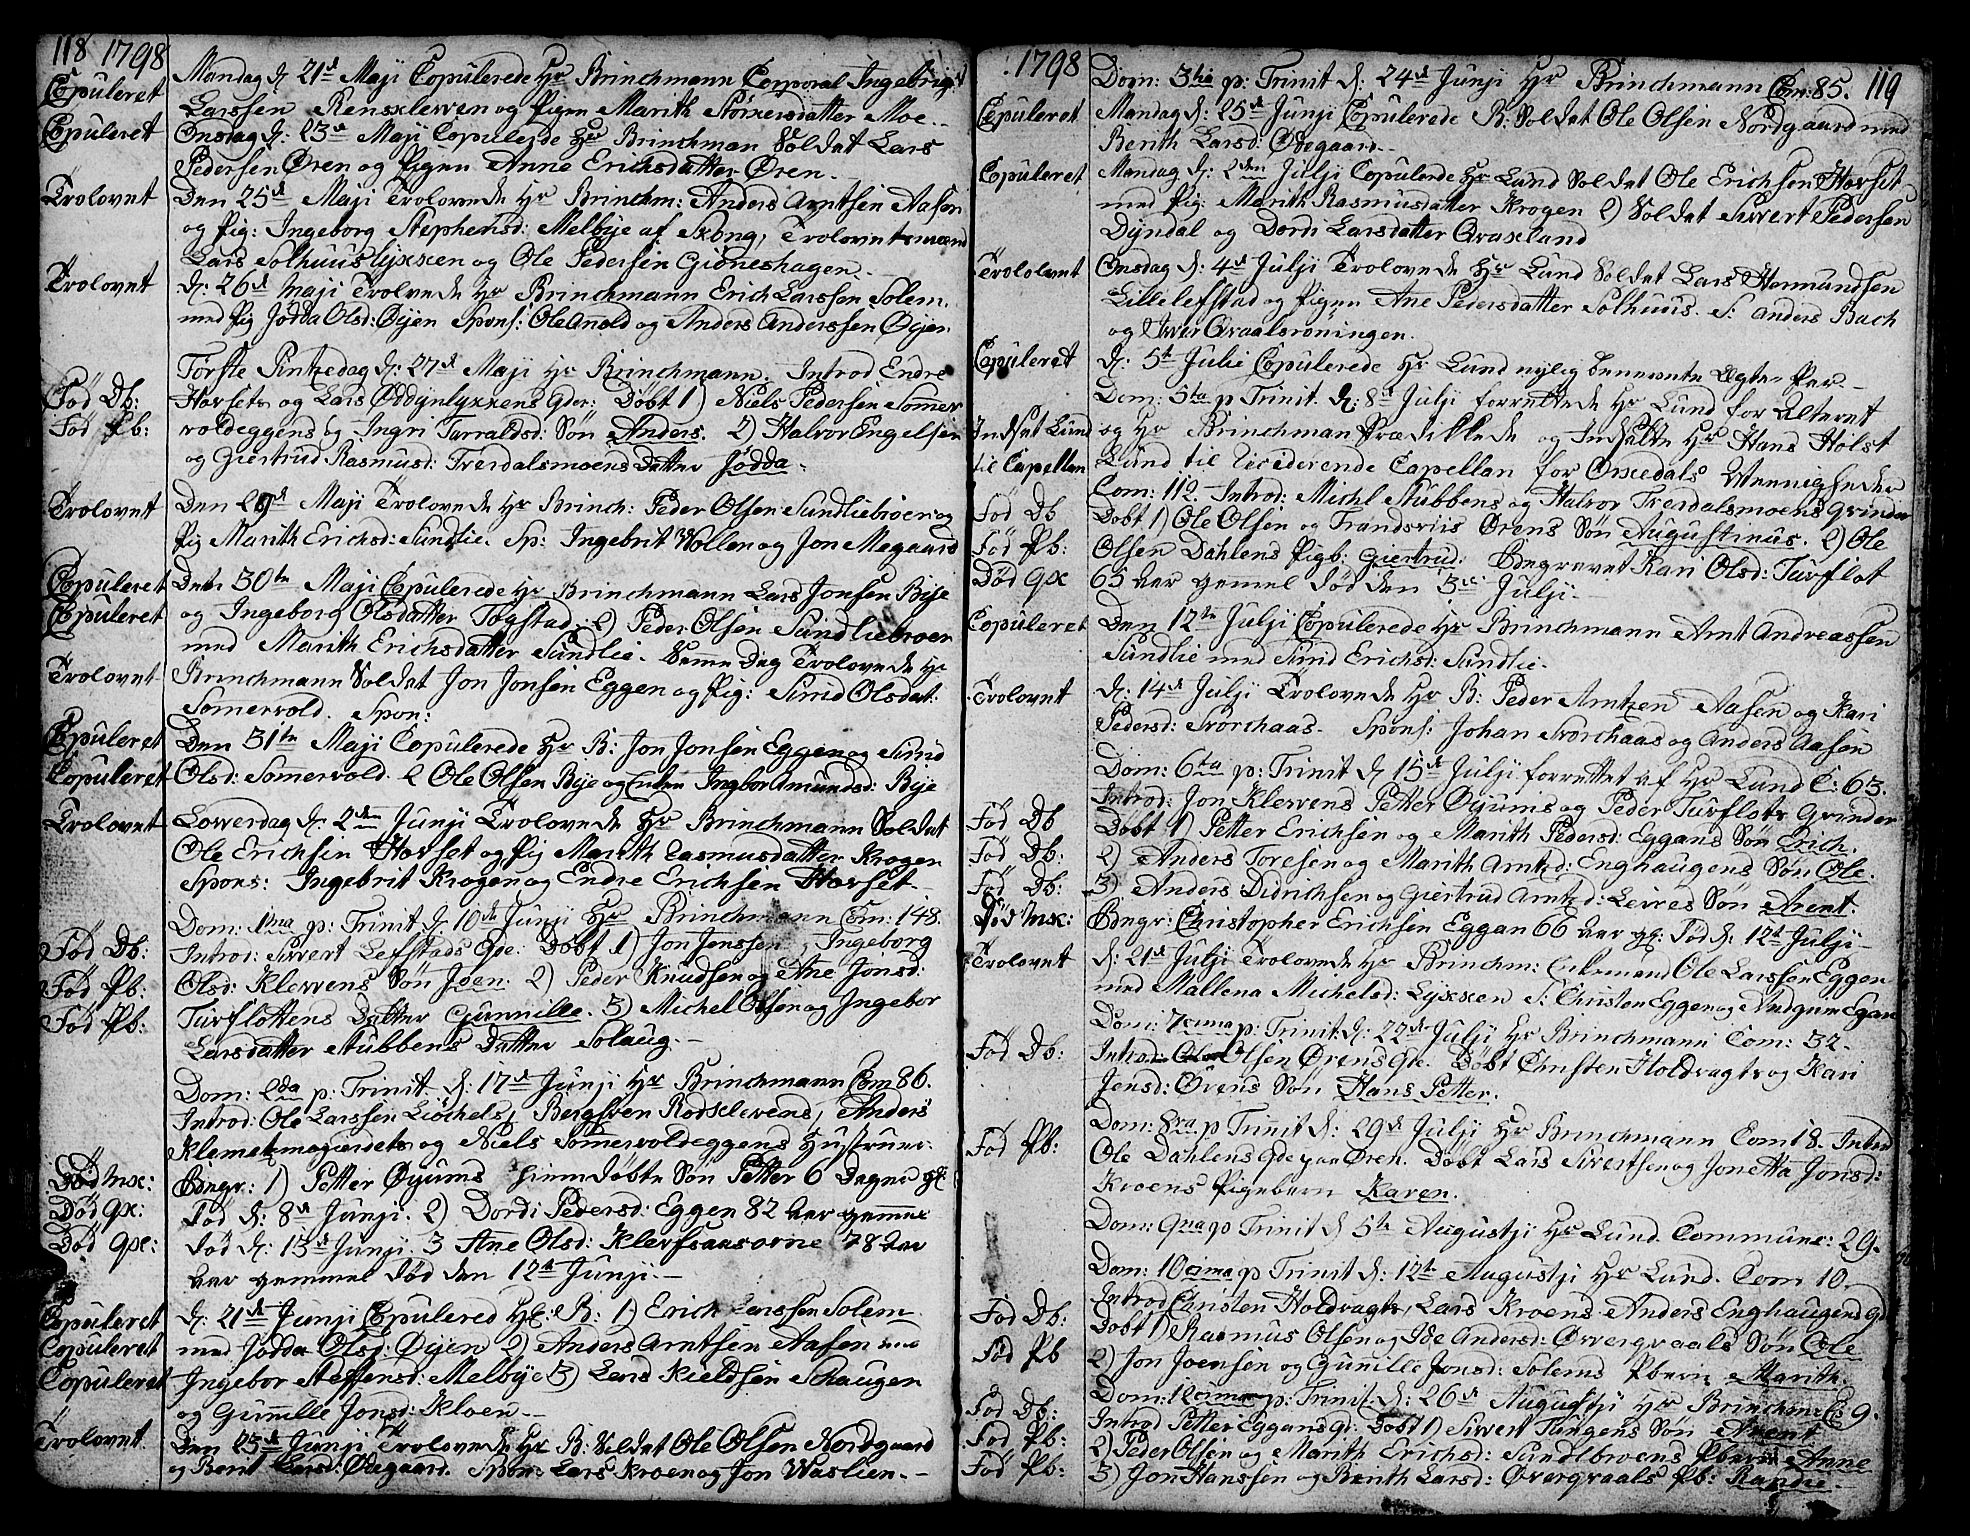 118 1798
Copuleret
Mandag d: 21d Maji Copulerede Hr Brinchmann Corporal Ingebrigt
Larssen Rensklewen og Pigen Marith Størkersdatter Moe.
Copuleret
Onsdag d: 23d Maji Copulerede Hr Brinchman Soldat Lars
Pedersen Øren og Pigen Anne Erichsdatter Øren.
Trolovet
Den 25d Maji Trolovede Hr Brinchm: Anders Arntsen Aasen
og Pig: Ingeborg Stephensd: Melbye af Skong, Trolovetsmænd
Lars Solhuuslykken og Ole Pedersen Grøneshagen.
Trolovet
d: 26d Maji Trolvede Hr Brinchmann Erich Larssen Solem
med Pig Jødda Olsd: Øijen Spons: Ole Amold og Anders Anderssen Øijen.
Første Pintzedag d: 27d Maji Hr Brinchmann. Introd Endre
Fød Db:
Horsets og Lars Oddynlykkens qder: Døbt 1) Niels Pedersen Sommer
Fød Pb:
voldeggens og Ingri Tarraldsd: Søn Anders. 2) Halvor Engelsen
og Giertrud Rasmusd: Trerdalsmoens Datter Jødda.
Trolovet
Den 29d Maji Trolovede Hr Brinch: Peder Olsen Sundliebroen og
Pig Marith Erichsd: Sundlie. Sp: Ingebrit Wollen og Jon Megaard
Copuleret
Den 30te Maji Copulerede Hr Brinchmann Lars Jonsen Bije
Copuleret
og Ingeborg Olsdatter Togstad. 2) Peder Olsen Sundliebroen
med Marith Erichsdatter Sundlie. Samme Dag Trolovede Hr
Trolovet
Brinchmann Soldat Jon Jonsen Eggen og Pig: Sirid Olsdat:
Somervold. Spon:
Copuleret
Den 31te Maji Copulerede Hr B: Jon Jonsen Eggen og Sirid
Copuleret
Olsd: Sommervold. 2 Ole Olsen Bije og Enken Ingbor Amundsd: Bije
Trolovet
Lowerdag d: 2den Junji Trolovede Hr Brinchmann Soldat
Ole Erichsen Horset og Pig Marith Rasmusdatter Krogen
Spons: Ingebrit Krogen og Endre Erichsen Horset.
Dom: 1ma p: Trinit d: 10de Junji Hr Brinchmann Com: 148.
Fød Db:
Introd: Siwert Lefstads Qde: Døbt 1) Jon Jenssen, Ingeborg
Fød Pb:
Olsd: Klewens Søn Joen. 2) Peder Knudsen og Ane Jonsd:
Fød Pb:
Turflottens Datter Gunnille. 3) Michel Olsen og Ingebor
Larsdatter Stubbens Datter Solaug.
Dom: 2da p: Trinit d: 17d Junji Hr Brinchmann Com 86.
Introd: Ole Larssen Liøchels, Bergsven Rodsklewens, Anders
Klemetsmogierdets og Niels Sømervoldeggens Hustruer.
Død Mk:
Bngr: 1) Petter Øyums hiemdøbte Søn Petter 6 Dage gl:
Død Qk:
Død d: 8d Junji. 2) Dordi Pedersd: Eggen 82 Aar gammel
Død Qk:
død d: 13d Junji. 3 Ane Olsd: 78
Aar gammel død den 12te Junji.
Copuleret
d: 21d Junji Copulered Hr: B: 1) Erich Larssen Solem
Copuleret
med Jødda Olsd: Øijen 2) Anders Arntsen Aasen med
Copuleret
Ingebor Steffensd: Melbye 3) Lars Kieldsen Schaugen
og Gunnille Jonsd: Kloen.
Trolovet
Den 23d Junji Trolovede Hr B: Soldat Ole Olsen Nordgaard
og Berit Larsd: Ødegaard. Spon: Lars Kroen og Jon Waslien.
1798 119
Dom: 3tia p: Trinit d: 24d Junji Hr Brinchmann Com: 85.
Copuleret
Mandag d: 25d Junji Copulerede B: Soldat Ole Olsen Nordgaard med
Berith Larsd: Ødegaard.
Copuleret
Mandag d: 2den Julji Copulerde Hr Lund Soldat Ole Erichsen Horset
med Pig: Marith Rasmusdatter Krogen 2) Soldat Siwert Pedersen
Dyndal og Dordi Larsdatter Qvaxland
Trolovet
Onsdag d: 4d Julji Trolovede Hr Lund Soldat Lars Hermundsen
Lillelefstad og Pigen Ane Pedersdatter Solhuus. S: Anders Bach
og Iwer Qvaalsrøningen.
Copuleret
d: 5te Julie Copulerede Hr Lund nylig benevnte Ægte Par.
Dom: 5ta p Trinit. d: 8d Julji forrettede Hr Lund for Alteret
Indsat Lund
og Hr Brinchman Prædikkede og Indsatte Hr Hans Holst
til Capellan
Lund til Residerende Capellan for Orkedals Menigheder
Com: 112. Introd: Michl Stubbens og Halvor Trerdalsmoens Qvinder
Fød Db
Døbt 1) Ole Olsen og Frandsriis Ørens Søn Augustinus. 2) Ole
Fød Pb:
Olsen Dahlens Pigb: Giertrud. Bngravet Kari Olsd: Turflot
Død Qk
65 Aar gamel død den 3die Julji.
Copuleret
Den 12te Julji Copulerede Hr Brinchmann Arnt Andreassen
Sundlie med Sirid Erichsd: Sundlie.
Trolovet
d: 14d Julji Trolovede Hr B: Peder Arntzen Aasen og Kari
Pedersd: Svorchaas. Spons: Johan Svorchaas og Anders Aasen
Dom: 6ta p: Trinit d 15d Julji forrettet af Hr Lund C: 63.
Introd: Jon Klewens Petter Øyums og Peder Turflots Qvinder
Fød Db
Døbt 1) Petter Erichsen og Marith Pedersd: Eggans Søn Erich.
Fød Db:
2) Anders Toresen og Marith Arntzd: Enghaugens Søn Ole.
Fød Db:
3) Anders Didrichsen og Giertrud Arntzd: Leires Søn Arent.
Død Mk:
Bngr: Christopher Erichsen Eggan 66 Aar gl: død d: 12d Julji
Trolovet
d: 21d Julji Trolovede Hr Brinchm: Enkemand Ole Larssen Eggen
med Mallena Michelsd: Lykken S: Christen Eggen og Egan
Dom: 7tima p: Trinit d: 22d Julji Hr Brinchmann Com: 32.
Fød Db:
Introd: Ole Olsen Ørens Qde. Døbt Christen Holdvagts og Kari
Jensd: Ørens Søn Hans Petter.
Dom: 8va p Trinit d: 29d Julji Hr Brinchmann Com 18. Introd
Fød Pb:
Ole Dahlens Qde paa Øren. Døbt Lars Sivertsen og Jonetta Jonsd:
Kroens Pigebarn Karen.
Dom: 9na p Trinit d 5te Augustji Hr Lund. Commune: 29.
Dom: 10cima p Trinit d: 12te Augustji Hr Lund. Com 10.
Introd Christen Holdvagts, Lars Kroens Anders Enghaugens Qd
Fød Db:
Døbt 1) Rasmus Olsen og Ide Andersd: Øvverqvaals Søn Ole
Fød Pb
2) Jon Joensen og Gunille Jonsd: Solems Pbarn Marith.
Dom: 12cima p: Trinit d: 26d Augustji Hr Brinchm C: 9.
Fød Db:
Introd Petter Eggans Q: Døbt 1) Siwert Tungens Søn Arent
Fød Pb:
2) Peder Olsen og Marith Erichsd: Sundlbroens Pbarn Anne
Fød Pb:
3) Jon Hanssen og Berith Larsd: Øverqvaals Pb: Randie.